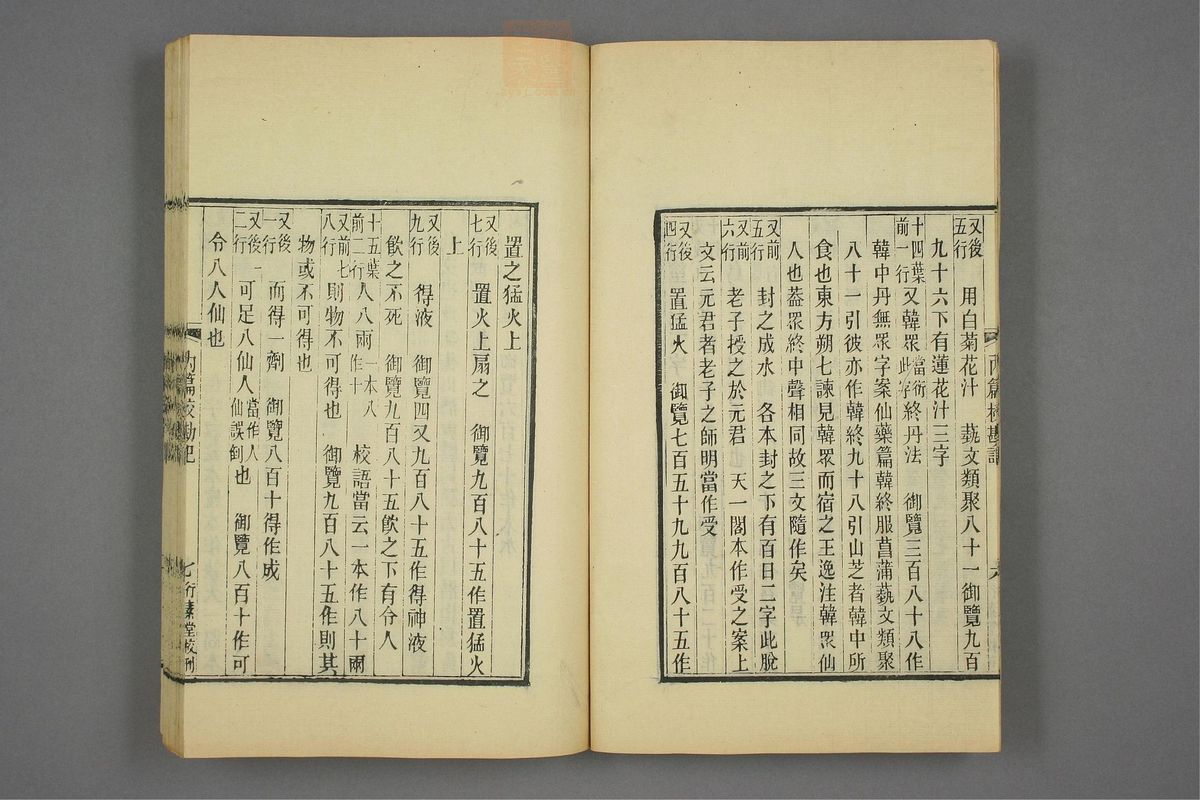 又後五行 用白菊花汁 蓺文類聚八十一御覽九百
九十六下有蓮花汁三字
十四葉前一行 又韓眾 當衍此字 終丹法 御覽三百八十八作
韓中丹無眾字案仙藥篇韓終服菖蒲蓺文類聚
八十一引彼亦作韓終九十八引山芝者韓中所
食也東方朔七諫見韓眾而宿之王逸注韓眾仙
人也葢眾終中聲相同故三文隨作矣
又前五行 封之成水 各本封之下有百日二字此脫
又前六行 老子授之於元君 天一閣本作受之案上
文云元君者老子之師明當作受
又後四行 置猛火 御覽七百五十九九百八十五作
內篇校勘記
六
置之猛火上
又後七行 置火上扇之 御覽九百八十五作置猛火
上
又後九行 得液 御覽四又九百八十五作得神液
飲之不死 御覽九百八十五飲之下有令人
十五葉前二行 人八兩 一本八作十 校語當云一本作八十兩
又前七八行 則物不可得也 御覽九百八十五作則其
物或不可得也
又後一行 而得一劑 御覽八百十得作成
又後一二行 可足八仙人 當作人仙誤倒 也 御覽八百十作可
令八人仙也
內篇校勘記
七
行素堂校刊